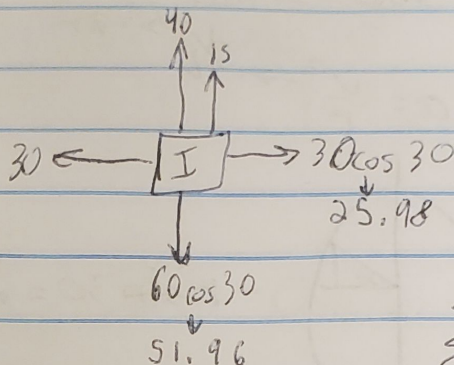 40
15
30
I
30cos 30
25.98
60cos30
51.96